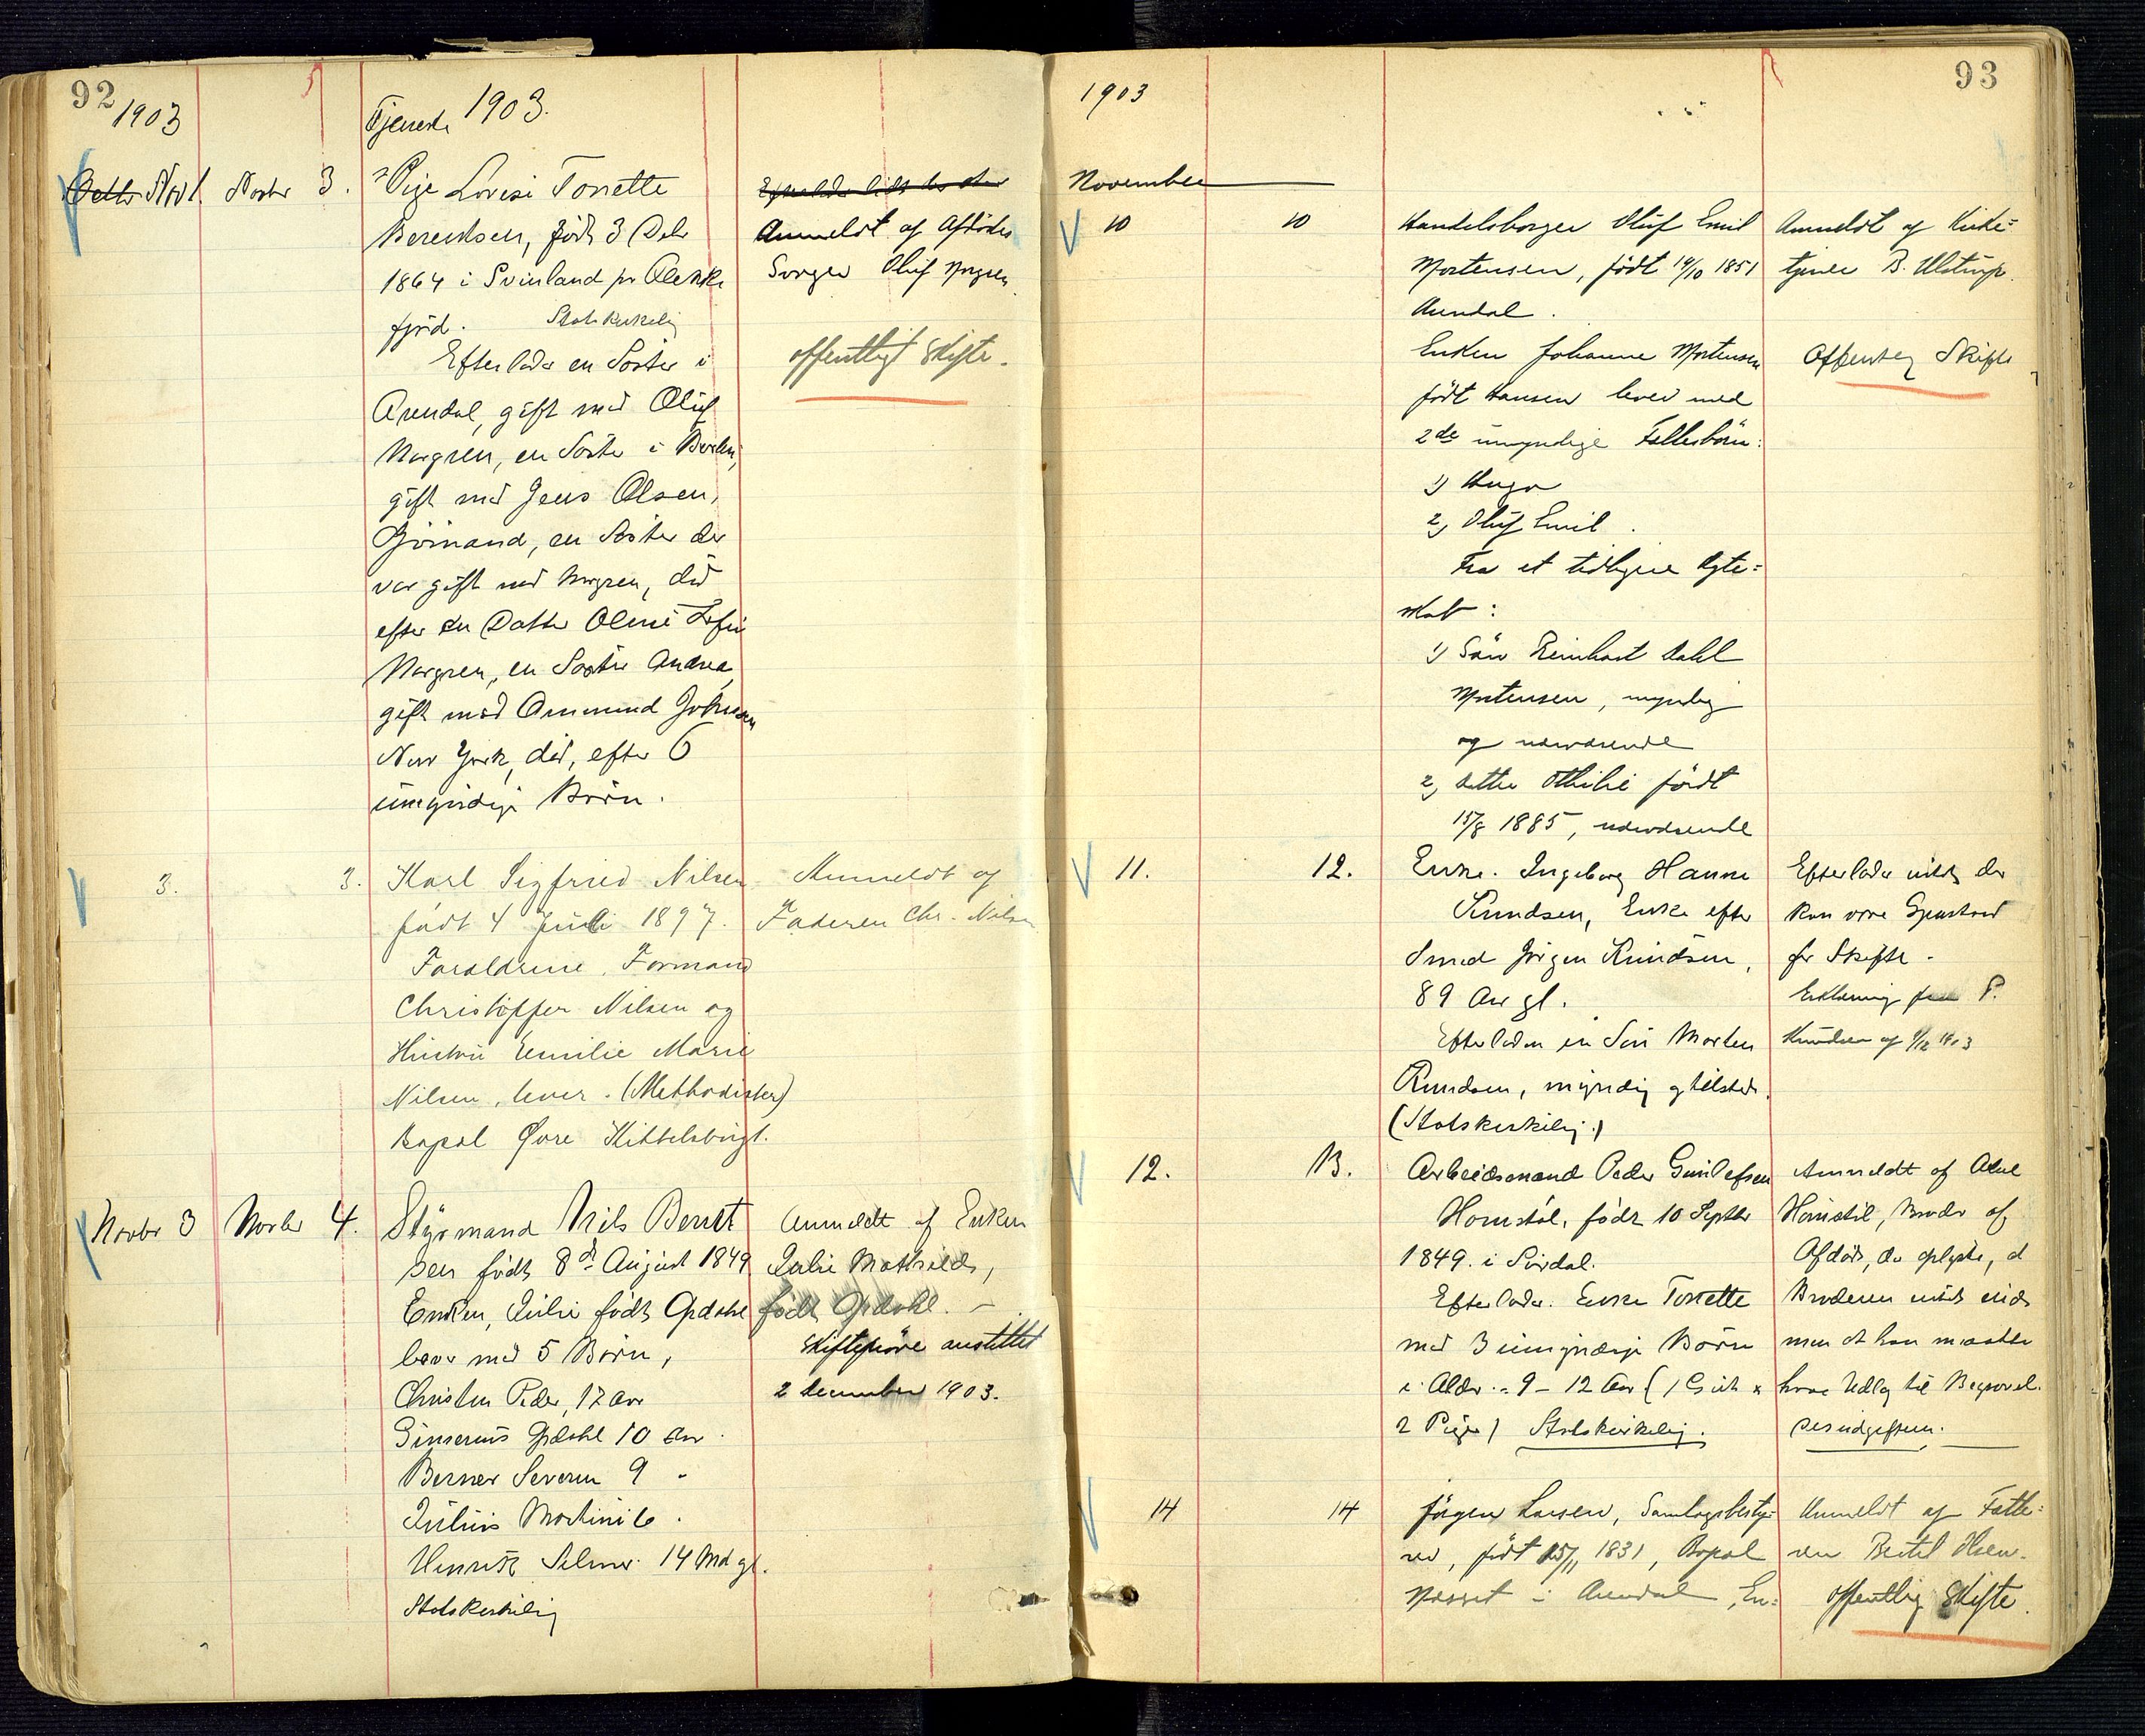 92
1903
1903.
Octbr Novbr 1. Novbr 3.
Tjeneste
Pige Lovise Tonette
Berentsen, født 3 Dcbr
1864 i Svinland pr Flekke
fjord. Statskirkelig
Efterlader en Søster i
Arendal, gift med Oluf
Norgren, en Søster i
gift med Jens Olsen,
en Søster der
var gift med Norgren, død
efter en Datter
Norgren, en Søster Andrea
gift med Johnsen
New York, død, efter 6
umyndige Børn.
Anmeldt af Afdødes
Svoger Oluf Norgren
offentligt Skifte.
3. 3.
Karl Sigfried Nilsen
født 4 Juli 1897.
Forældrene, Formand
Christoffer Nilsen og
Hustru Emilie Marie
Nilsen, lever. (Methodister)
Bopæl Øvre Kittelsbugt.
Anmeldt af
Faderen Chr. Nilsen
Novbr 3 Novbr 4.
Styrmand Nils Bernt
sen født 8de August 1849
Enken, Julie født Opdahl
lever med 5 Børn,
Christen Peder, 17 Aar
Opdahl 10 Aar.
Berner Severin 9 "
Julius Martin 6.
Henrik Selmer 14 Md gl.
Statskirkelig
Anmeldt af Enken
Julie Mathilde,
født Opdahl.
Skifteprøve anstillet
2 December 1903.
1903
93
November
10 10
Handelsborger Oluf Emil
Mortensen, født 14/10 1851
Arendal.
Enken Johanne Mortensen
født Hansen lever med
2de umyndige Fællesbørn:
1) Hugo
2) Oluf Emil.
Fra et tidligere Ægte=
skab:
1) Søn Reinhart Dahl
Mortensen, myndig
og udeværende
2) Datter Othilie født
15/8 1885, udeværende
Anmeldt af Kirke=
tjener B. Ulstrup.
Offentlig Skifte
11. 12.
Enke. Ingeborg Hanne
Knudsen, Enke efter
Smed Jørgen Knudsen,
89 Aar gl.
Efterlader en Søn Morten
Knudsen, myndig og tilstede.
(Statskirkelig.)
Efterlader intet der
kan være Gjenstand
for Skifte.
Erklæring fra P.
Knudsen af 9/12 1903
12. 13.
Arbeidsmand Peder Gunlefsen
Homstøl, født 10 Septbr
1849. i Sirdal.
Efterlader. Enke Tonette
med 3 umyndige Børn
i Alder. 9 - 12 Aar (1 Gut &
2 Piger) Statskirkelig.
Anmeldt af Atle
Homstøl, Broder af
Afdøde, der oplyste, at
Broderen intet eiede
men at han maatte
have Udlæg til Begravel=
sesudgifterne.
14 14
Jørgen Larsen, Samlagsbesty=
rer, født 25/11 1831, Bopæl
Næsset i Arendal, En=
Anmeldt af Fætte=
ren Bertel Olsen.
offentlig Skifte.